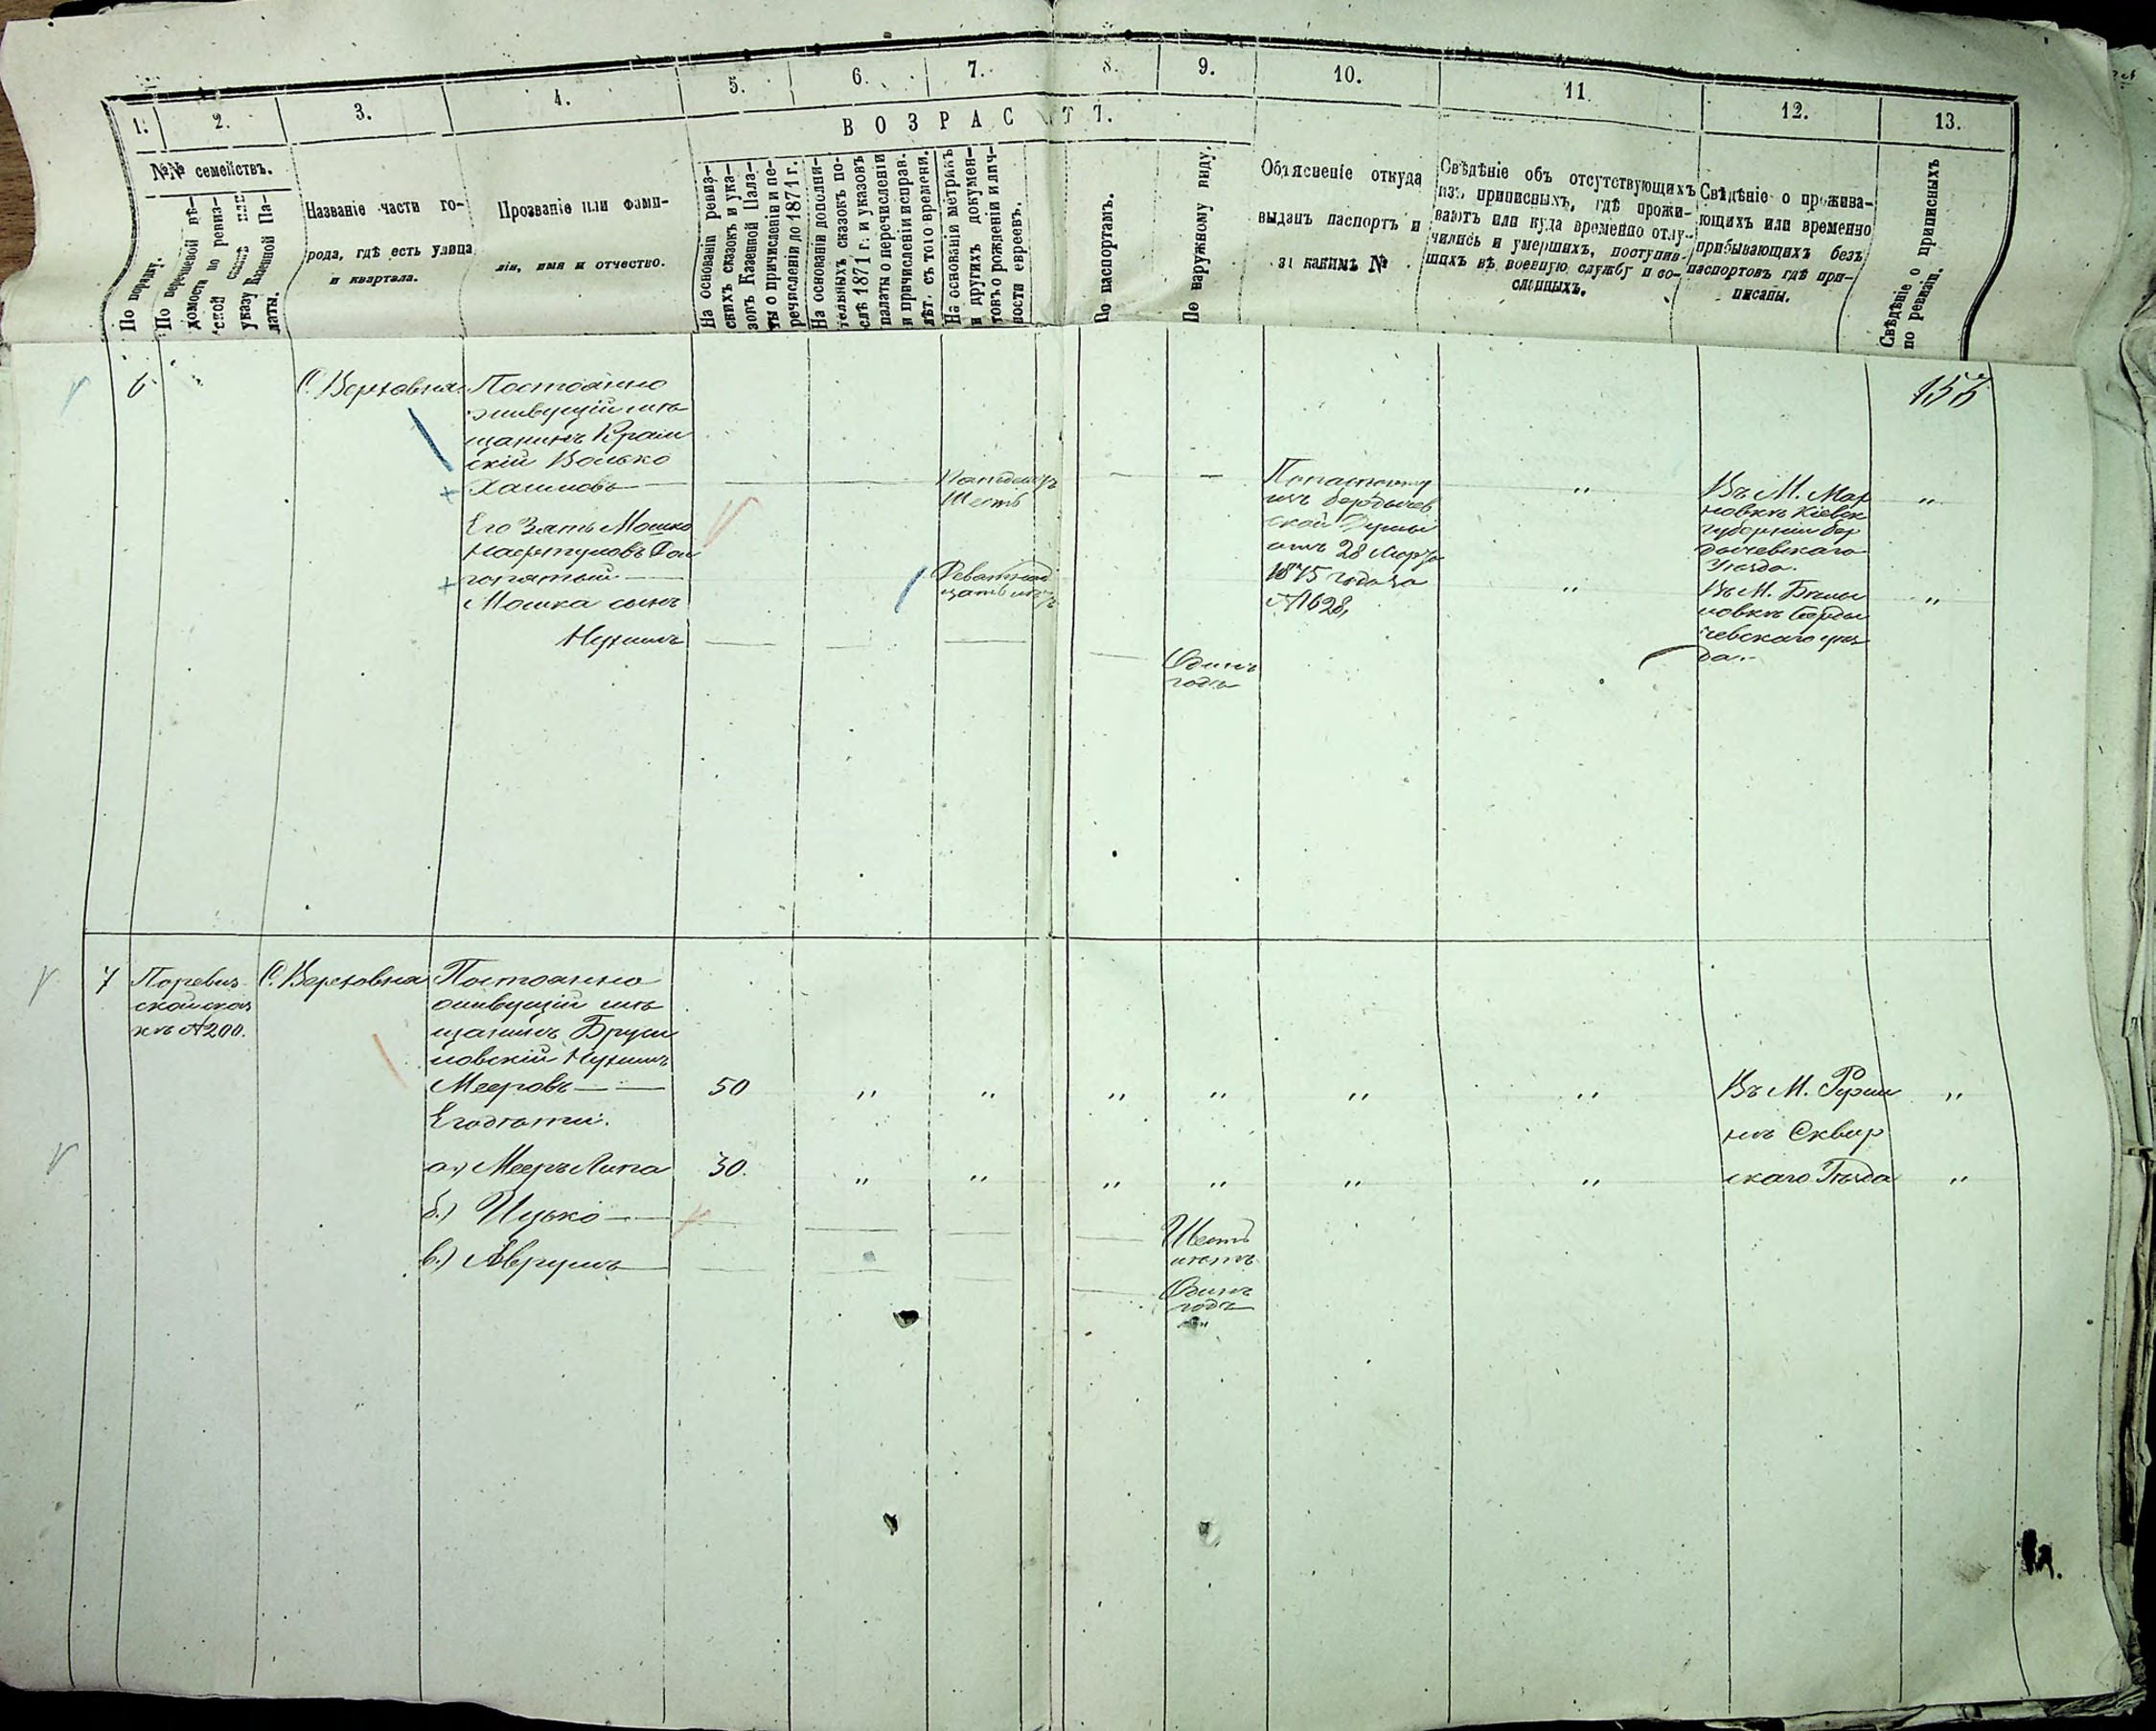 1. 2. 3. 4. 5. 6. 7. 8. 9. 10. 11. 12. 13.
ВОЗРАСТЪ.
№№ семействъ.
По порядку.
По перечневой вѣ-
домости по ревиз-
ской
указу Казенной Па-
латы.
Названіе части го-
рода, гдѣ есть улица
и квартала.
Прозваніе или фами-
лія, имя и отчество.
На основаніи ревиз-
скихъ сказокъ и ука-
зовъ Казенной Пала-
ты о причисленіи и пе-
речисленіи до 1871 г.
На основаніи дополни-
тельныхъ сказокъ по-
слѣ 1871 г. и указовъ
палаты о перечисленіи
и причисленіи исправ.
лѣт. съ того времени.
На основаніи метрикъ
и другихъ докумен-
товъ о рожденіи и лич-
ности евреевъ.
По паспортамъ.
По наружному виду.
Объясненіе откуда
выданъ паспортъ и
за какимъ №
Свѣдѣніе объ отсутствующихъ
изъ приписныхъ, гдѣ прожи-
ваютъ или куда временно отлу-
чились и умершихъ, поступив-
шихъ въ военную службу и со-
сланныхъ.
Свѣдѣніе о прожива-
ющихъ или временно
прибывающихъ безъ
паспортовъ гдѣ при-
писаны.
Свѣдѣніе о приписныхъ
по ревизіи.
6
С. Верховна
Постоянно
живущій мѣ
щанинъ
скій Волько
Хаимовъ
Его Зять Мошко
Мошка сынъ
Нухимъ
Шесть
Одинъ
годъ
изъ Бердичев
ской Думы
отъ 28 Марта
1875 года за
№1628,
Въ М. Мах
новкѣ Кіевск
губерніи Бер
дичевскаго
Уѣзда.
Въ М. Бѣлы
ловкѣ Берди
чевскаго уѣз
да.
7
По ревиз
ской сказ
кѣ №200.
С. Верховна
Постоянно
живущій мѣ
щанинъ Бруси
ловскій Нухимъ
Мееровъ
50
Его дѣти:
а.) Мееръ Липа
30.
б.) Ицько
Шесть
лѣтъ
в.) Аврумъ
Одинъ
годъ
Въ М. Ружи
нѣ Сквир
скаго Уѣзда